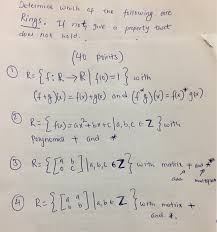 Determine which of the following are
Rings. If not, give a property that
does not hold.
(40 points)
① R = {f: R → R | f(0) = 1} with
(f+g)(x) = f(x) + g(x) and (f*g)(x) = f(x) * g(x).
② R = {f(x) = ax² + bx + c | a, b, c ∈ Z} with
Polynomial + and *
③ R = {[a b; 0 c] | a, b, c ∈ Z} with matrix + and *
add multiplication
④ R = {[a b; 0 b] | a, b ∈ Z} with matrix +
and *.